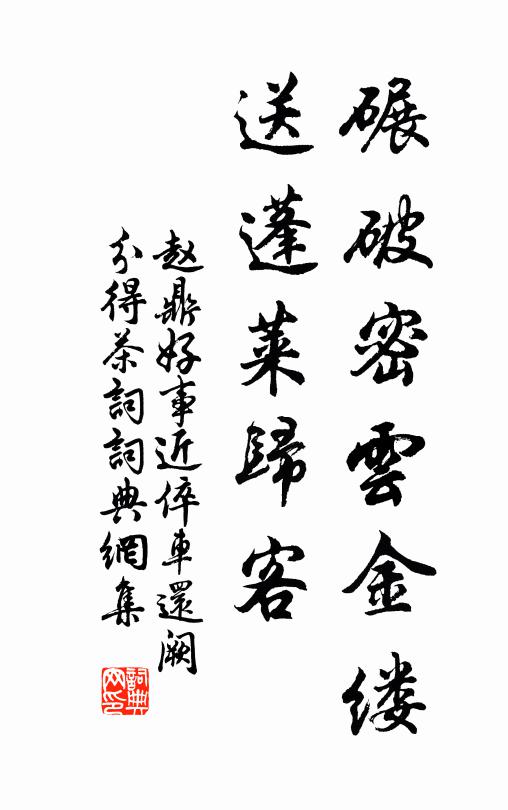 碾破密雲金缕
送蓬萊歸客
赵鼎好事近倅車還阙
分得茶詞詞典網集
詞典
网印